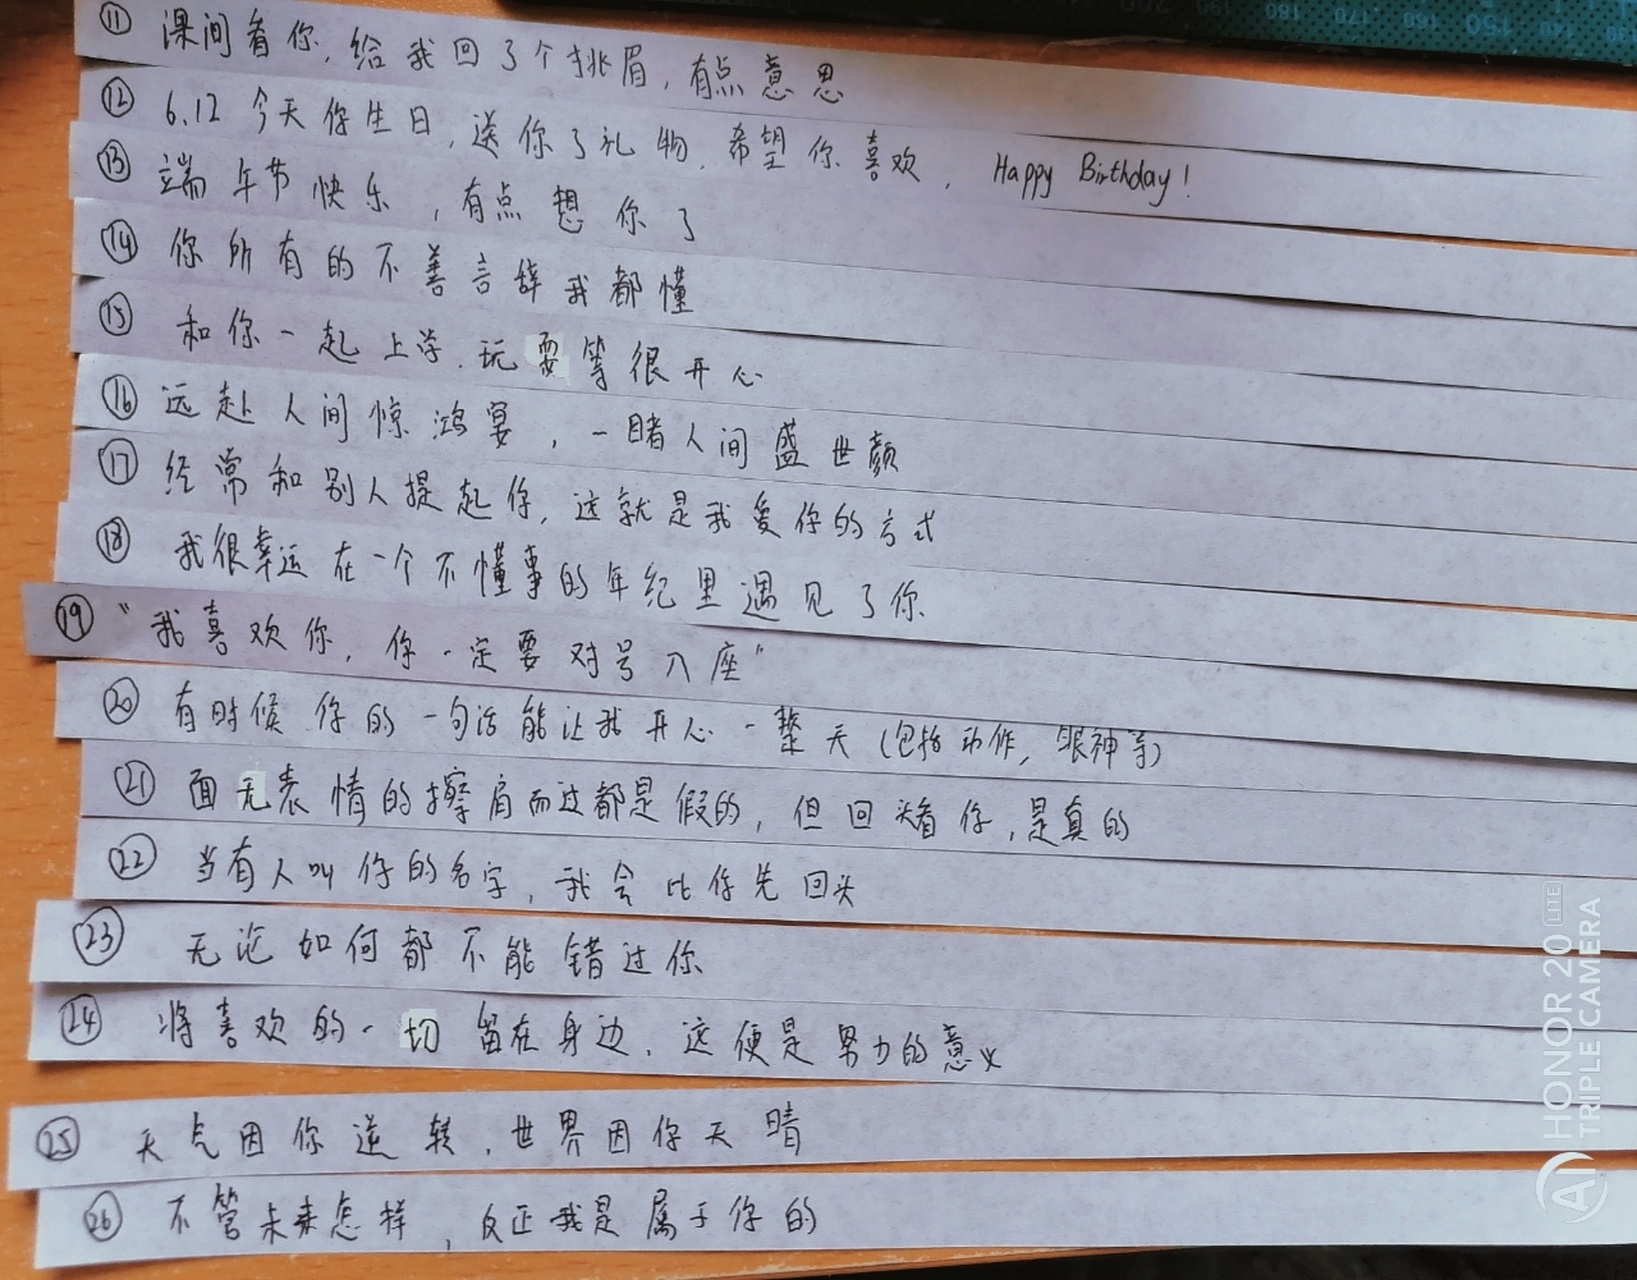 ⑪ 课间看你,给我回了个挑眉,有点意思
⑫ 6.12 今天你生日,送你了礼物,希望你喜欢, Happy Birthday!
⑬ 端午节快乐,有点想你了
⑭ 你所有的不善言辞我都懂
⑮ 和你一起上学.玩耍等很开心
⑯ 远赴人间惊鸿宴,一睹人间盛世颜
⑰ 经常和别人提起你,这就是我爱你的方式
⑱ 我很幸运在一个不懂事的年纪里遇见了你
⑲ "我喜欢你,你一定要对号入座"
⑳ 有时候你的一句话能让我开心一整天(包括动作,眼神等)
㉑ 面无表情的擦肩而过都是假的,但回头看你,是真的
㉒ 当有人叫你的名字,我会比你先回头
㉓ 无论如何都不能错过你
㉔ 将喜欢的一切留在身边,这便是努力的意义
㉕ 天气因你逆转,世界因你天晴
㉖ 不管未来怎样,反正我是属于你的
200 190 180 170 160 150 140 130
HONOR 20 LITE
AI TRIPLE CAMERA